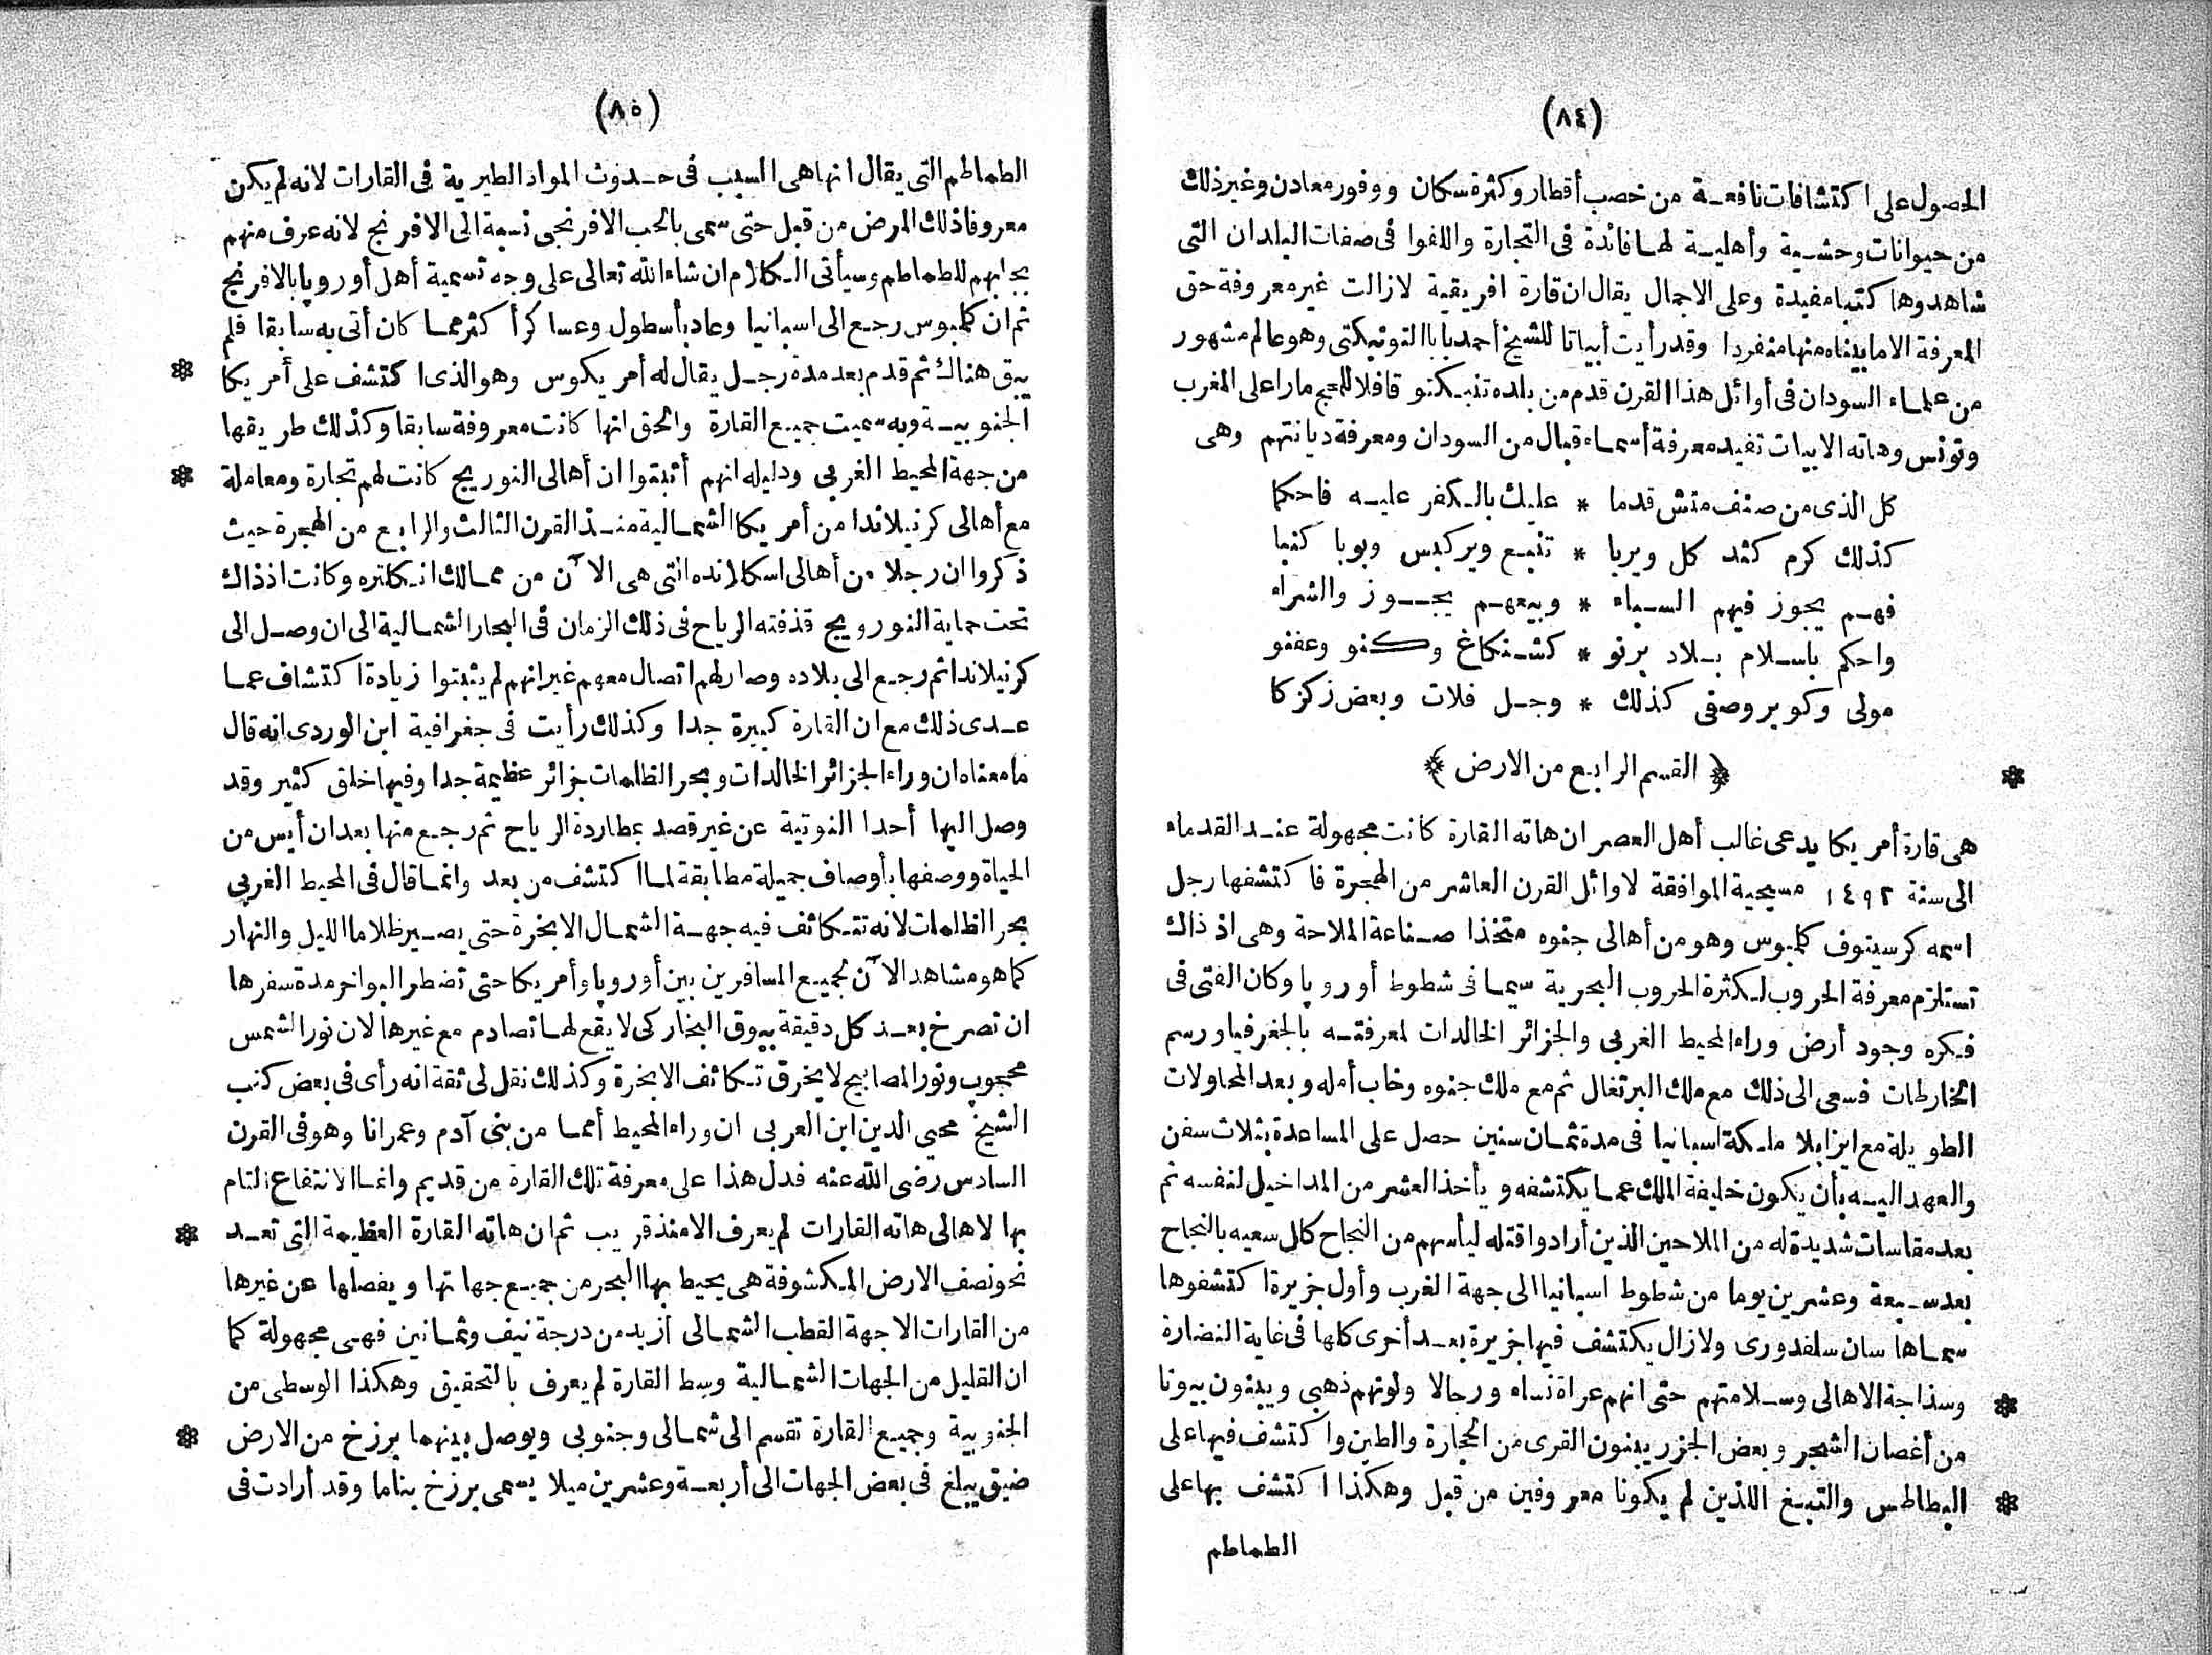 (٨٤)
الحصول على اكتشافات نافعة من خصب أقطار وكثرة سكان ووفور معادن وغير ذلك
من حيوانات وحشية وأهلية لها فائدة فى التجارة واللفوا فى صفات البلدان التى
شاهدوها كتبا مفيدة وعلى الاجمال يقال ان قارة افريقية لازالت غير معروفة حق
المعرفة الا ما بيناه منها منفردا وقد رأيت أبياتا للشيخ أحمد بابا التونبكتى وهو عالم مشهور
من علماء السودان فى أوائل هذا القرن قدم من بلده تنبكتو قافلا للحج مارا على المغرب
وتونس وهاته الابيات تفيد معرفة أسماء قبال من السودان ومعرفة ديانتهم وهى
كل الذى من صنف متش قدما * عليك بالكفر عليه فاحكما
كذلك كرم كثد كل ويربا * تنبع ويركبس وبوبا كنبا
فهم يجوز فيهم السباء * وبيعهم يجوز والشراء
واحكم باسلام بلاد برنو * كشنكاغ وكنو وعفنو
مولى وكوبر وصفى كذلك * وجل فلات وبعض زكزكا
﴿ القسم الرابع من الارض ﴾
هى قارة أمريكا يدعى غالب أهل العصر ان هاته القارة كانت مجهولة عند القدماء
الى سنة ١٤٩٢ مسيحية الموافقة لاوائل القرن العاشر من الهجرة فاكتشفها رجل
اسمه كرسيتوف كلمبوس وهو من أهالى جنوه متخذا صناعة الملاحة وهى اذ ذاك
تستلزم معرفة الحروب لكثرة الحروب البحرية سيما فى شطوط أوروپا وكان الفتى فى
فكره وجود أرض وراء المحيط الغربى والجزائر الخالدات لمعرفته بالجغرفيا ورسم
الخارطات فسعى الى ذلك مع ملك البرتغال ثم مع ملك جنوه وخاب أمله وبعد المحاولات
الطويلة مع ايزابلا ملكة اسبانيا فى مدة ثمان سنين حصل على المساعدة بثلاث سفن
والعهد اليه بأن يكون خليفة الملك عما يكتشفه ويأخذ العشر من المداخيل لنفسه ثم
بعد مقاسات شديدة له من الملاحين الذين أرادوا قتله ليأسهم من النجاح كال سعيه بالنجاح
بعد سبعة وعشرين يوما من شطوط اسبانيا الى جهة الغرب وأول جزيرة اكتشفوها
سماها سان سلفدورى ولازال يكتشف فيها جزيرة بعد أخرى كلها فى غاية النضارة
وسذاجة الاهالى وسلامتهم حتى انهم عراة نساء ورجالا ولونهم ذهبى ويبنون بيوتا
من أغصان الشجر وبعض الجزر يبنون القرى من الحجارة والطين واكتشف فيها على
البطاطس والتبغ اللذين لم يكونا معروفين من قبل وهكذا اكتشف بها على
الطماطم
(٨٥)
الطماطم التى يقال انها هى السبب فى حدوث المواد الطيرية فى القارات لانه لم يكن
معروفا ذلك المرض من قبل حتى سمى بالحب الافرنجى نسبة الى الافرنج لانه عرف منهم
بجلبهم للطماطم وسيأتى الكلام ان شاء الله تعالى على وجه تسمية أهل أوروپا بالافرنج
ثم ان كلمبوس رجع الى اسبانيا وعاد بأسطول وعساكر أكثر مما كان أتى به سابقا فلم
يبق هناك ثم قدم بعد مدة رجل يقال له أمريكوس وهو الذى اكتشف على أمريكا
الجنوبية وبه سميت جميع القارة والحق انها كانت معروفة سابقا وكذلك طريقها
من جهة المحيط الغربى ودليله انهم أثبتوا ان أهالى النوريج كانت لهم تجارة ومعاملة
مع أهالى كرنيلاندا من أمريكا الشمالية منذ القرن الثالث والرابع من الهجرة حيث
ذكروا ان رجلا من أهالى اسكلانده التى هى الآن من ممالك انكلتره وكانت اذ ذاك
تحت حماية النورويج قذفته الرياح فى ذلك الزمان فى البحار الشمالية الى ان وصل الى
كرنيلاندا ثم رجع الى بلاده وصار لهم اتصال معهم غير انهم لم يثبتوا زيادة اكتشاف عما
عدى ذلك مع ان القارة كبيرة جدا وكذلك رأيت فى جغرافية ابن الوردى انه قال
ما معناه ان وراء الجزائر الخالدات وبحر الظلمات جزائر عظيمة جدا وفيها خلق كثير وقد
وصل اليها أحدا النوتية عن غير قصد بمطاردة الرياح ثم رجع منها بعد ان أيس من
الحياة ووصفها بأوصاف جميلة مطابقة لما اكتشف من بعد وانما قال فى المحيط الغربى
بحر الظلمات لانه تتكاثف فيه جهة الشمال الابخرة حتى يصير ظلاما الليل والنهار
كما هو مشاهد الآن لجميع المسافرين بين أوروپا وأمريكا حتى تضطر البواخر مدة سفرها
ان تصرخ بعد كل دقيقة ببوق البخار كى لا يقع لها تصادم مع غيرها لان نور الشمس
محجوب ونور المصابيح لا يخرق تكاثف الابخرة وكذلك نقل لى ثقة انه رأى فى بعض كتب
الشيخ محيى الدين ابن العربى ان وراء المحيط أمما من بنى آدم وعمرانا وهو فى القرن
السادس رضى الله عنه فدل هذا على معرفة تلك القارة من قديم وانما الانتفاع التام
بها لاهالى هاته القارات لم يعرف الا منذ قريب ثم ان هاته القارة العظيمة التى تعد
نحو نصف الارض المكشوفة هى يحيط بها البحر من جميع جهاتها ويفصلها عن غيرها
من القارات الا جهة القطب الشمالى أزيد من درجة نيف وثمانين فهى مجهولة كما
ان القليل من الجهات الشمالية وسط القارة لم يعرف بالتحقيق وهكذا الوسطى من
الجنوبية وجميع القارة تقسم الى شمالى وجنوبى ويوصل بينهما برزخ من الارض
ضيق يبلغ فى بعض الجهات الى أربعة وعشرين ميلا يسمى برزخ بناما وقد أرادت فى